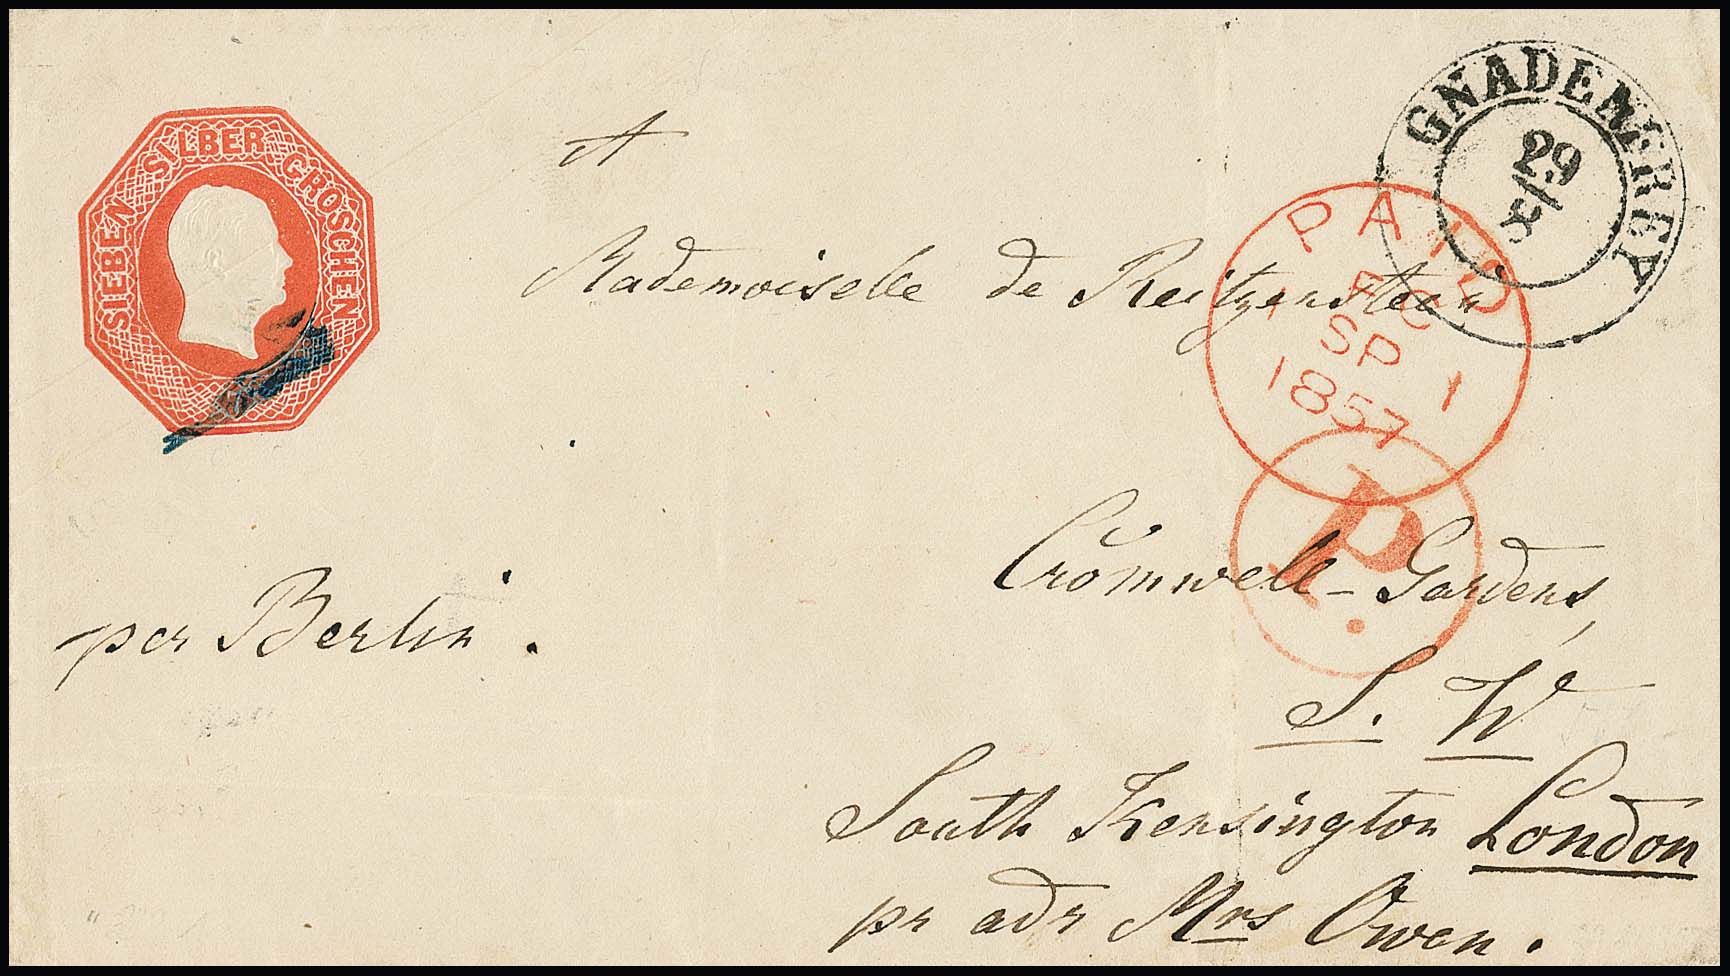 SIEBEN SILBER GROSCHEN
GNADENFREY
29
8
PAID
1 FC 1
SP
1857
P.
A
Mademoiselle de Reitzenstein
Cromwell-Gardens,
per Berlin.
S. W
South Kensington London
pr adr Mrs Owen.